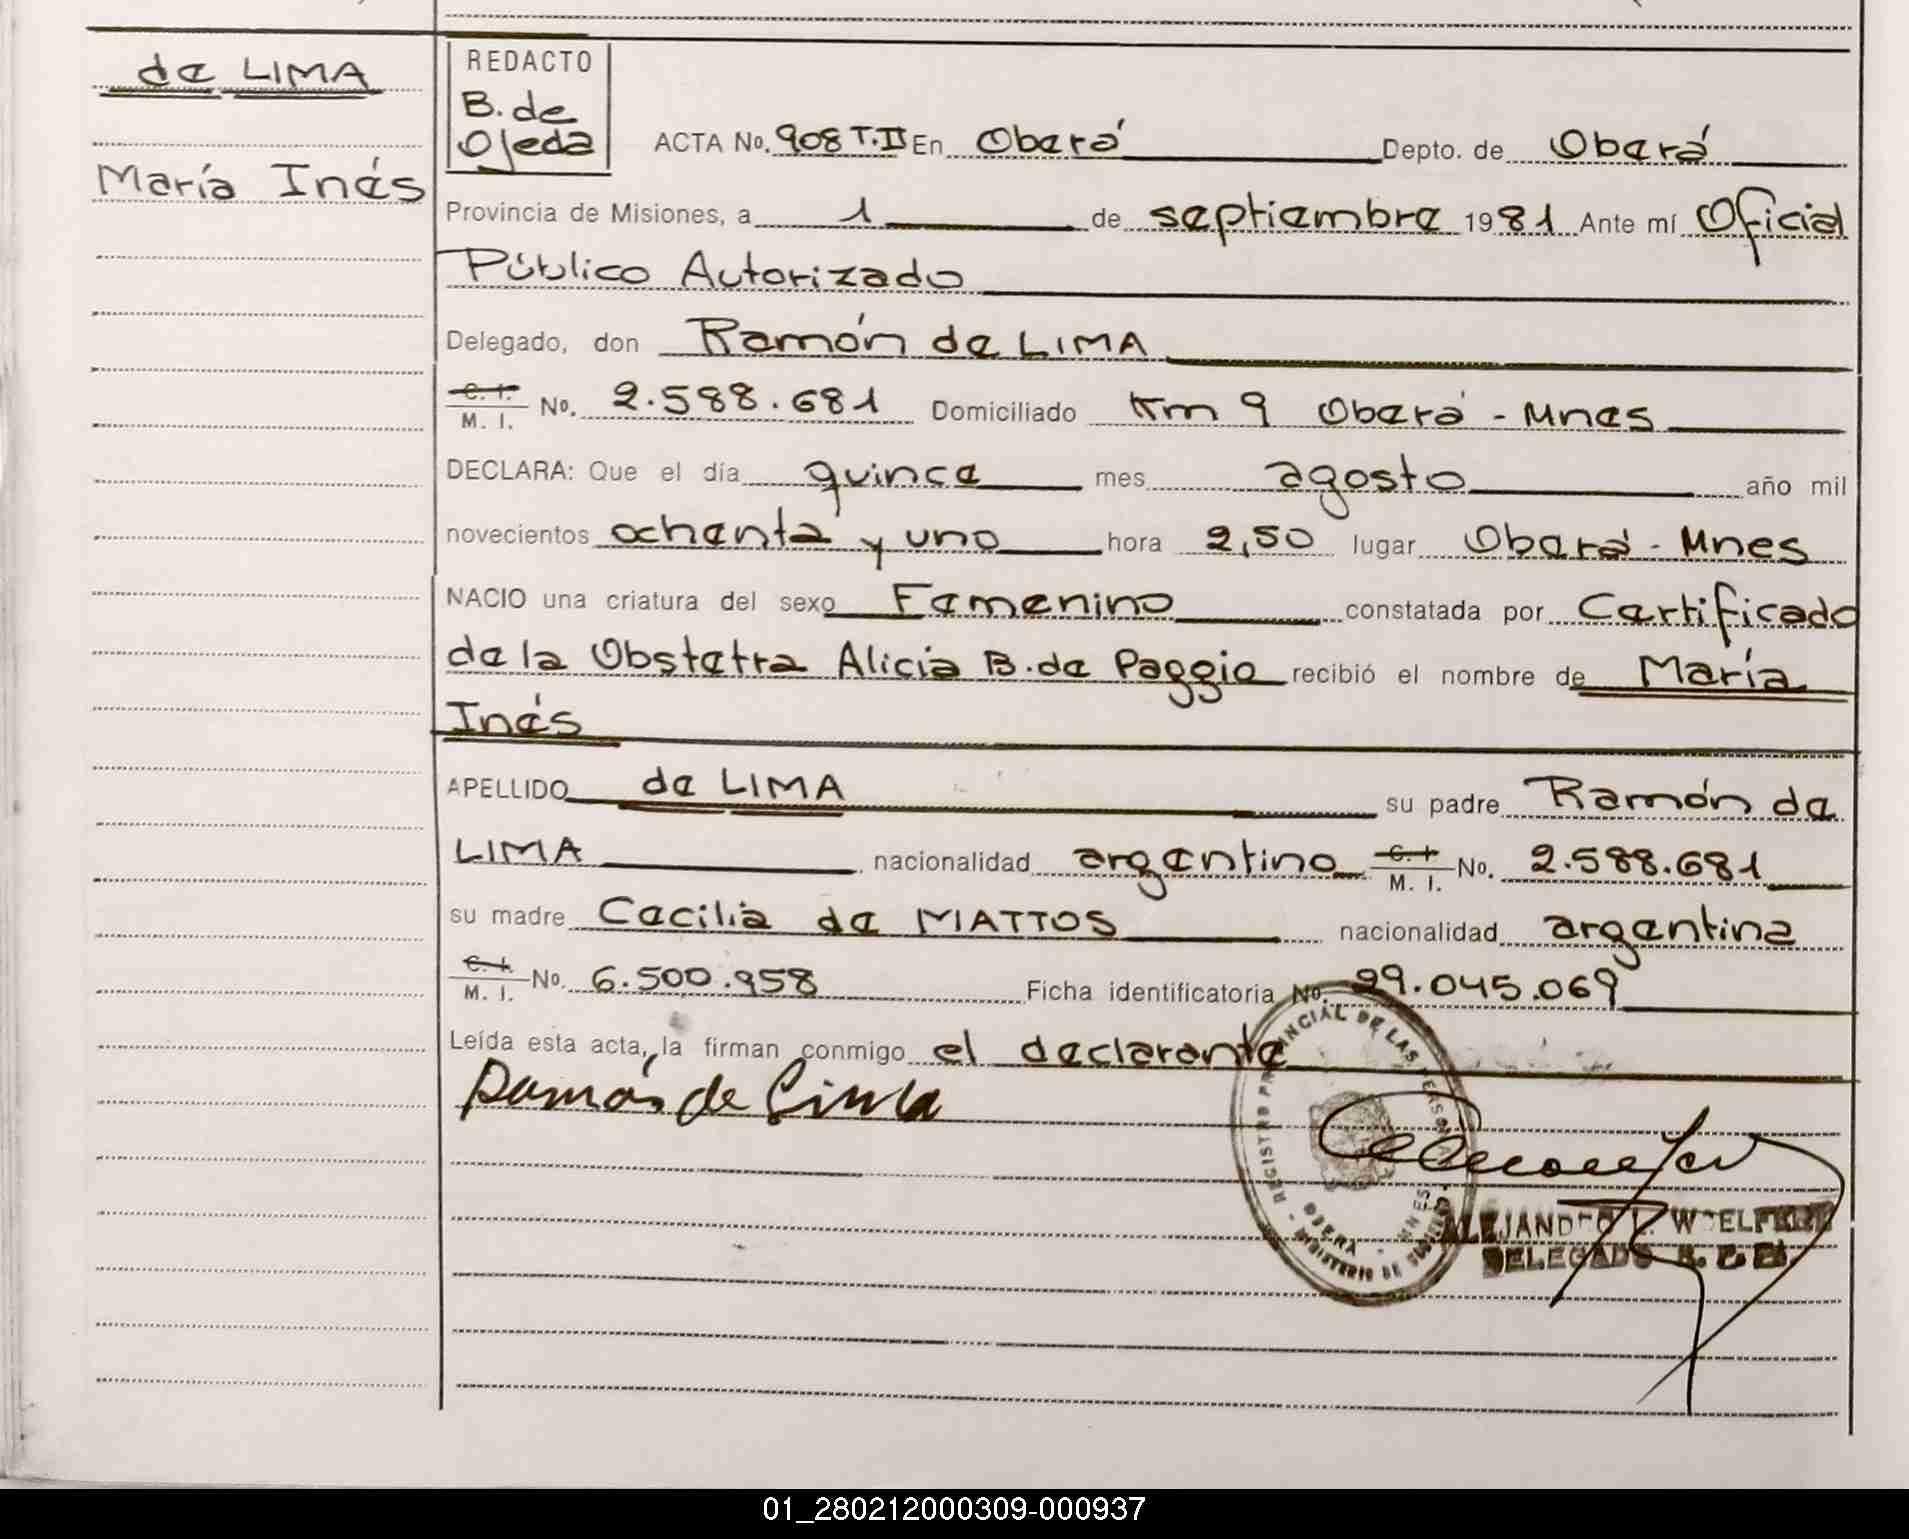 de LIMA
María Inés
REDACTO
B. de
Ojeda
ACTA No. 908 T.II En Oberá Depto. de Oberá
Provincia de Misiones, a 1 de septiembre 1981 Ante mí Oficial
Público Autorizado
Delegado, don Ramón de LIMA
C. I.
M. I. No. 2.588.681 Domiciliado Km 9 Oberá - Mnes
DECLARA: Que el día quince mes agosto año mil
novecientos ochenta y uno hora 2,50 lugar Oberá - Mnes
NACIO una criatura del sexo Femenino constatada por Certificado
de la Obstetra Alicia B. de Paggio recibió el nombre de María
Inés
APELLIDO de LIMA su padre Ramón de
LIMA nacionalidad argentino C. I. M. I. No. 2.588.681
su madre Cecilia de MATTOS nacionalidad argentina
C. I.
M. I. No. 6.500.958 Ficha identificatoria No. 29.045.069
Leída esta acta, la firman conmigo el declarante
Ramón de Lima
REGISTRO PROVINCIAL DE LAS PERSONAS
OBERA - MNES
MINISTERIO DE
ALEJANDRO
DELEGADO
01_280212000309-000937